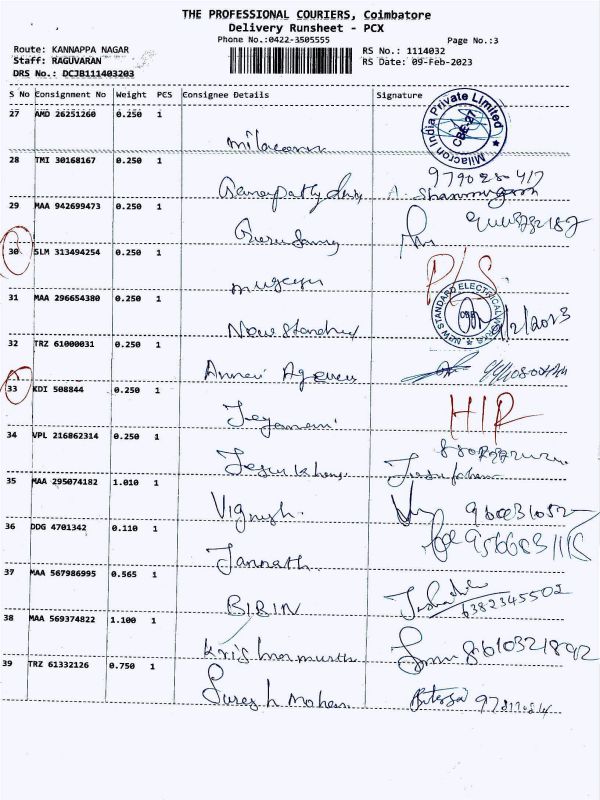 THE PROFESSIONAL COURIERS, Coimbatore
Delivery Runsheet - PCX
Phone No.:0422-3505555
Page No.:3
Route: KANNAPPA NAGAR
RS No.: 1114032
Staff: RAGUVARAN
RS Date: 09-Feb-2023
DRS No.: DCJB111403203
S No Consignment No Weight PCS Consignee Details Signature
27 AMD 26251260 0.250 1
Milacron India Private Limited
CBE-27
Milacron
28 TMI 30168167 0.250 1
29 MAA 942699473 0.250 1
Gurusamy
30 SLM 313494254 0.250 1
P/S
31 MAA 296654380 0.250 1
NEW STANDARD ELECTRICAL WORKS
New Standard
9/2/2023
32 TRZ 61000031 0.250 1
Annai Agency
33 KDI 508844 0.250 1
Jeyamani
34 VPL 216862314 0.250 1
35 MAA 295074182 1.010 1
Vignesh
36 DDG 4701342 0.110 1
9566831115
Jannath
37 MAA 567986995 0.565 1
BIBIN
6382345502
38 MAA 569374822 1.100 1
Krishnamurth
8610321892
39 TRZ 61332126 0.750 1
Suresh Mohan